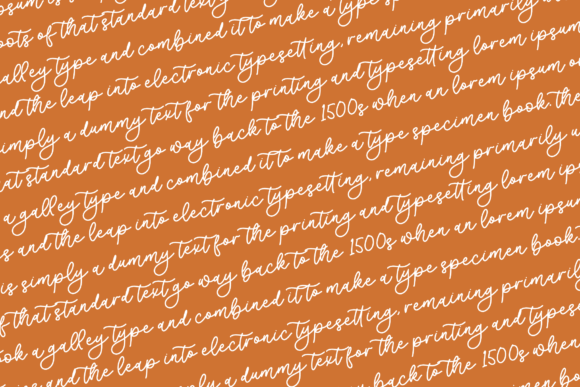 psum is
oots of that standard text
alley type and combined it to make a type
nd the leap into electronic typesetting, remaining primarily
simply a dummy text for the printing and typesetting lorem ipsum
hat standard text go way back to the 1500s when an lorem ipsum
a galley type and combined it to make a type specimen book the
s and the leap into electronic typesetting, remaining primarily
is simply a dummy text for the printing and typesetting lorem ip
f that standard text go way back to the 1500s when an lorem ipsum
ook a galley type and combined it to make a type specimen book
and the leap into electronic typesetting, remaining primaril
simply a dummy text for the printing and types
back to the 1500s when
specimen book